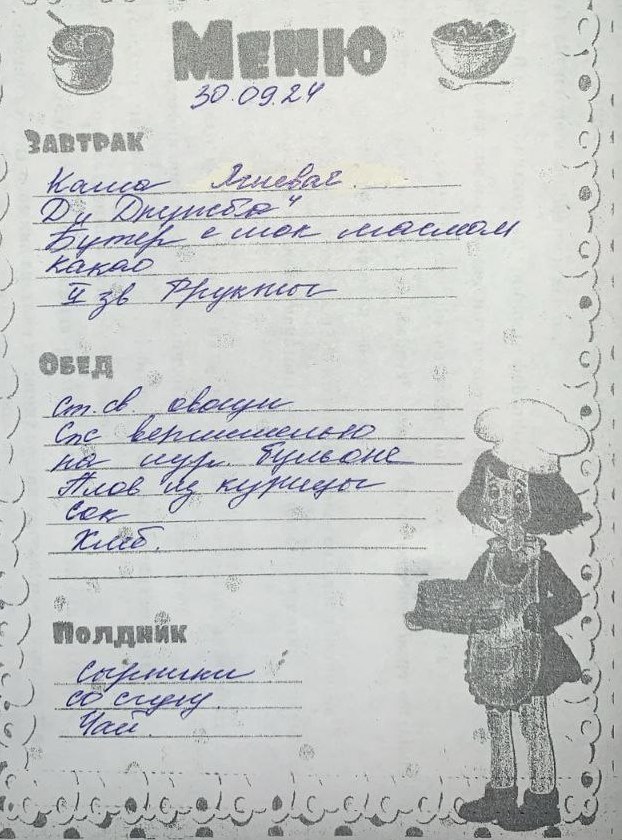 Меню
30.09.24
Завтрак
Каша Ячневая
Ду Дружба"
Бутер с шок маслом
какао
II зв Фрукты
Обед
Ст. св. овощи
Суп с вермишелью
на кур. бульоне
Плов из курицы
сок
Хлеб.
Полдник
сырники
со сгущ.
Чай